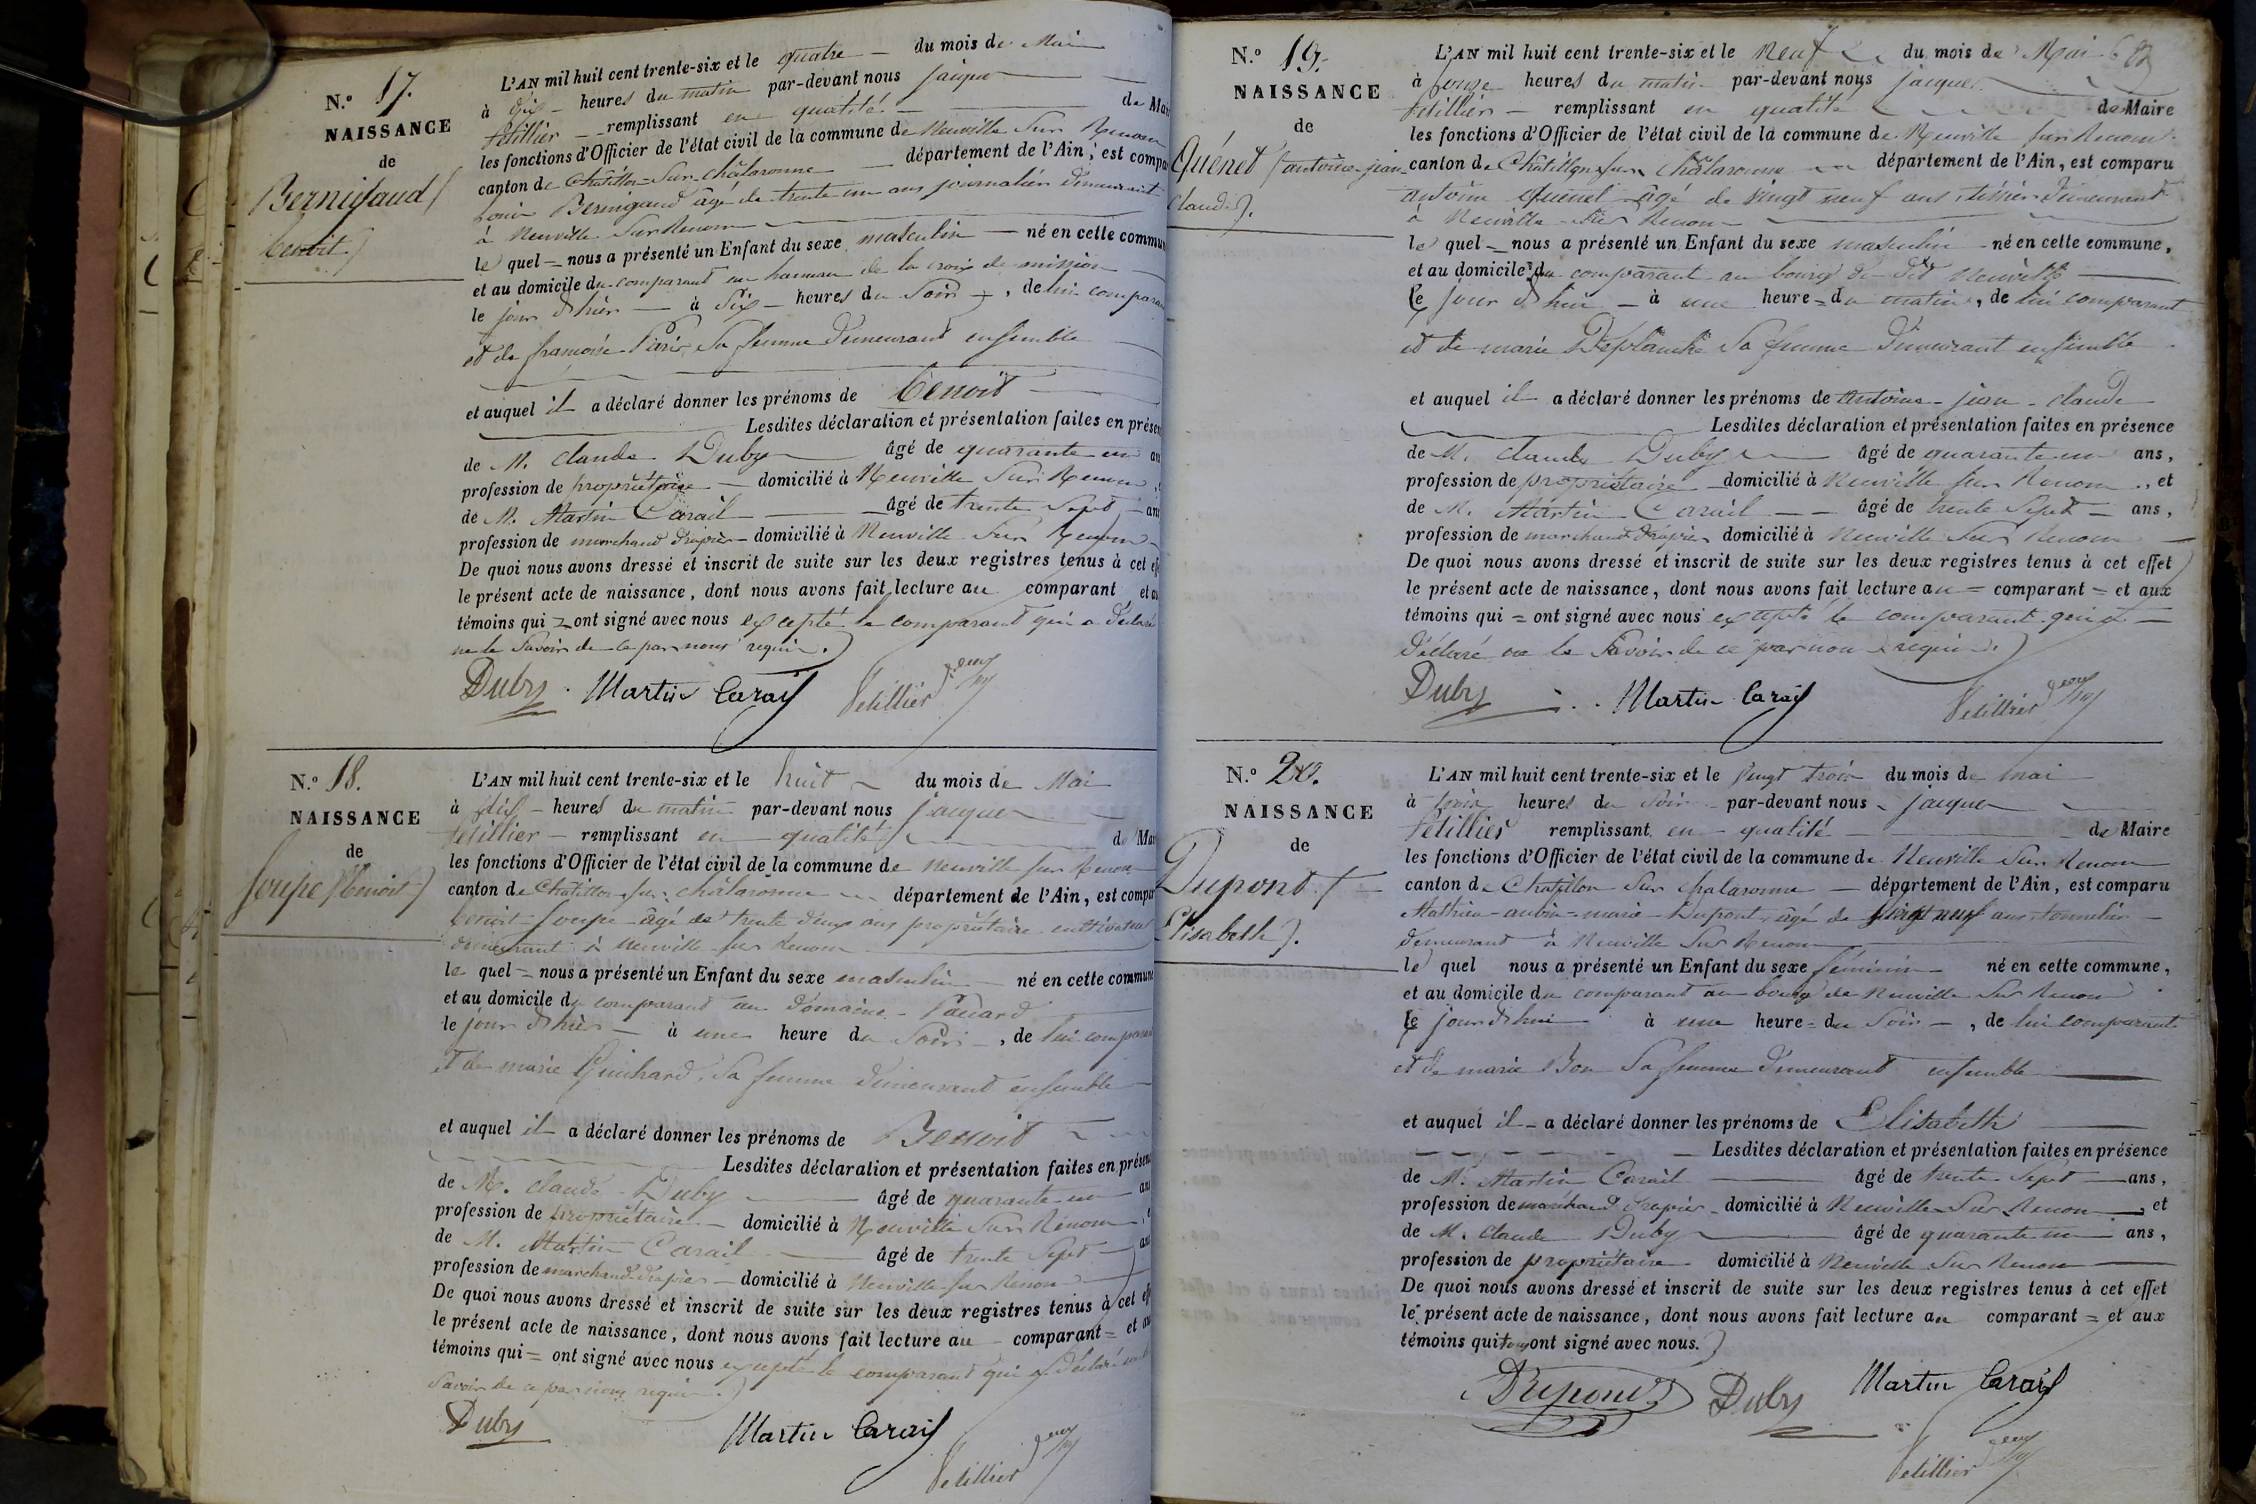 N.º 17.
NAISSANCE
de
Bernigaud (
benoit)
L'AN mil huit cent trente-six et le quatre du mois de Mai
à dix heures du matin par-devant nous jacques
Petillier remplissant en qualité de Mai
les fonctions d'Officier de l'état civil de la commune de Neuville Sur Renom
canton de Châtillon-Sur-châlaronne département de l'Ain, est compa
Louis Bernigaud âgé de trente un ans journalier demeurant
à Neuville Sur Renom
le quel nous a présenté un Enfant du sexe masculin né en cette commun
et au domicile du comparant au hameau de la croix de mission
le jour d'hier à Six heures du Soir, de lui compara
et de françoise Paris Sa femme demeurant ensemble
et auquel il a déclaré donner les prénoms de benoit
Lesdites déclaration et présentation faites en présen
de M. Claude Duby âgé de quarante un an
profession de propriétaire domicilié à Neuville Sur Renom
de M. Martin Carail âgé de trente Sept ans
profession de marchand drapier domicilié à Neuville Sur Renom
De quoi nous avons dressé et inscrit de suite sur les deux registres tenus à cet eff
le présent acte de naissance, dont nous avons fait lecture au comparant et au
témoins qui ont signé avec nous excepté le comparant qui a déclaré
ne le Savoir de ce par nous requis.)
Duby. Martin Carail Petillier
N.º 18.
NAISSANCE
de
Soupe (benoit)
L'AN mil huit cent trente-six et le huit du mois de Mai
à dix heures du matin par-devant nous jacques
Petillier remplissant en qualité de Mai
les fonctions d'Officier de l'état civil de la commune de Neuville sur Renom
canton de Châtillon sur châlaronne département de l'Ain, est compar
benoit Soupe âgé de trente deux ans propriétaire cultivateur
demeurant à Neuville sur Renom
le quel = nous a présenté un Enfant du sexe masculin né en cette commune
et au domicile du comparant au domaine
le jour d'hier à une heure du Soir, de lui comparant
et de marie Guichard, Sa femme demeurant ensemble
et auquel il a déclaré donner les prénoms de Benoit
Lesdites déclaration et présentation faites en présen
de M. Claude Duby âgé de quarante un an
profession de propriétaire domicilié à Neuville Sur Renom
de M. Martin Carail âgé de trente Sept an
profession de marchand drapier domicilié à Neuville sur Renom
De quoi nous avons dressé et inscrit de suite sur les deux registres tenus à cet eff
le présent acte de naissance, dont nous avons fait lecture au comparant = et au
témoins qui = ont signé avec nous excepté le comparant qui a déclaré ne le
Savoir de ce par nous requis.)
Duby Martin Carail Petillier
N.º 19.
NAISSANCE
de
Quénet (antoine-jean-
claude).
L'AN mil huit cent trente-six et le Neuf du mois de Mai
à onze heures du matin par-devant nous jacques
Petillier remplissant en qualité de Maire
les fonctions d'Officier de l'état civil de la commune de Neuville sur Renom
canton de Châtillon sur châlaronne département de l'Ain, est comparu
antoine Quénet âgé de vingt neuf ans demeurant
à Neuville Sur Renom
le quel nous a présenté un Enfant du sexe masculin né en cette commune,
et au domicile du comparant au bourg de dit Neuville
le jour d'hui à une heure = du matin, de lui comparant
et de marie Desplanche Sa femme demeurant ensemble
et auquel il a déclaré donner les prénoms de antoine-jean-claude
Lesdites déclaration et présentation faites en présence
de M. Claude Duby âgé de quarante un ans,
profession de propriétaire domicilié à Neuville sur Renom, et
de M. Martin Carail âgé de trente Sept ans,
profession de marchand drapier domicilié à Neuville Sur Renom
De quoi nous avons dressé et inscrit de suite sur les deux registres tenus à cet effet
le présent acte de naissance, dont nous avons fait lecture au = comparant = et aux
témoins qui = ont signé avec nous excepté le comparant qui a
déclaré ne le Savoir de ce par nous requis.)
Duby Martin Carail Petillier
N.º 20.
NAISSANCE
de
Dupont (
Elisabeth).
L'AN mil huit cent trente-six et le vingt trois du mois de mai
à trois heures du Soir par-devant nous jacques
Petillier remplissant en qualité de Maire
les fonctions d'Officier de l'état civil de la commune de Neuville Sur Renom
canton de Chatillon Sur chalaronne département de l'Ain, est comparu
Mathieu-aubin-marie-Dupont, âgé de vingt neuf ans tonnelier
demeurant à Neuville Sur Renom
le quel nous a présenté un Enfant du sexe féminin né en cette commune,
et au domicile du comparant au bourg de Neuville Sur Renom
le jour d'hui à une heure = du Soir, de lui comparant
et de marie Bon Sa femme demeurant ensemble
et auquel il a déclaré donner les prénoms de Elisabeth
Lesdites déclaration et présentation faites en présence
de M. Martin Carail âgé de trente-Sept ans,
profession de marchand drapier domicilié à Neuville Sur Renom, et
de M. Claude Duby âgé de quarante un ans,
profession de propriétaire domicilié à Neuville Sur Renom
De quoi nous avons dressé et inscrit de suite sur les deux registres tenus à cet effet
le présent acte de naissance, dont nous avons fait lecture au comparant = et aux
témoins qui tous ont signé avec nous.)
Dupont Duby Martin Carail
Petillier